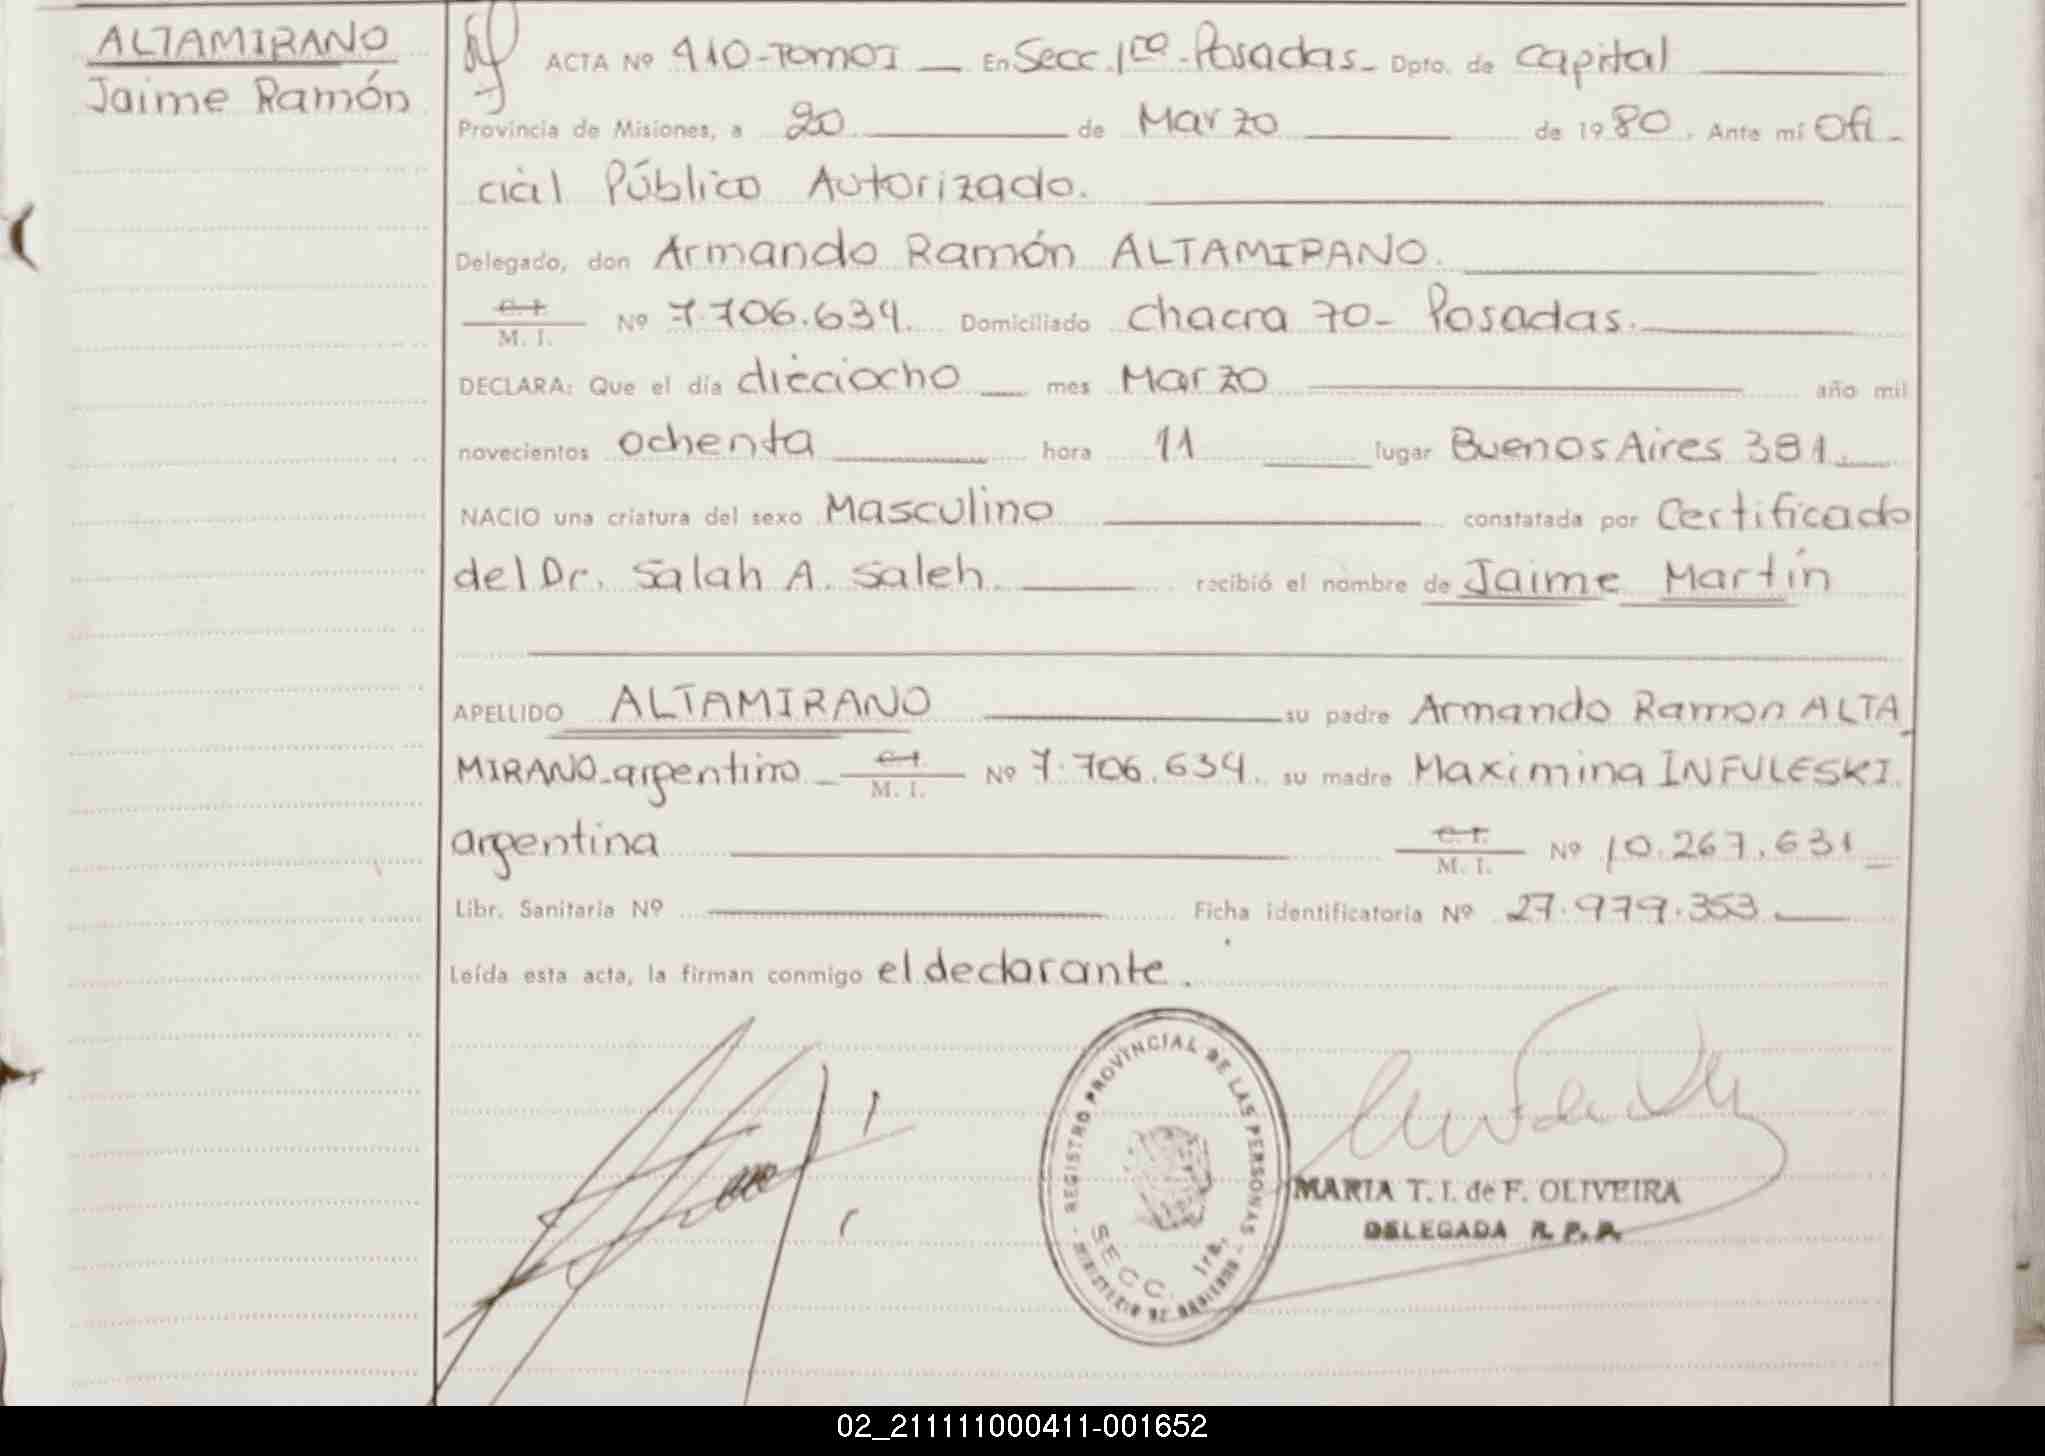 ALTAMIRANO
Jaime Ramón
ACTA Nº 910-TOMOI En Secc. 1ra-Posadas- Dpto. de Capital
Provincia de Misiones, a 20 de Marzo de 1980. Ante mí Ofi-
cial Público Autorizado.
Delegado, don Armando Ramón ALTAMIRANO.
C. I.
M. I.
Nº 7.706.634. Domiciliado Chacra 70- Posadas.
DECLARA: Que el día dieciocho mes Marzo año mil
novecientos ochenta hora 11 lugar Buenos Aires 381.
NACIO una criatura del sexo Masculino constatada por Certificado
del Dr. Salah A. Saleh. recibió el nombre de Jaime Martín
APELLIDO ALTAMIRANO su padre Armando Ramon ALTA
MIRANO-argentino C. I.
M. I.
Nº 7.706.634. su madre Maximina INFULESKI.
argentina C. I.
M. I.
Nº 10.267.631
Libr. Sanitaria Nº Ficha identificatoria Nº 27.979.353
Leída esta acta, la firman conmigo el declarante.
REGISTRO PROVINCIAL DE LAS PERSONAS
SECC. 1ra.
MINISTERIO DE GOBIERNO
MARIA T. I. de F. OLIVEIRA
DELEGADA R. P. P.
02_211111000411-001652